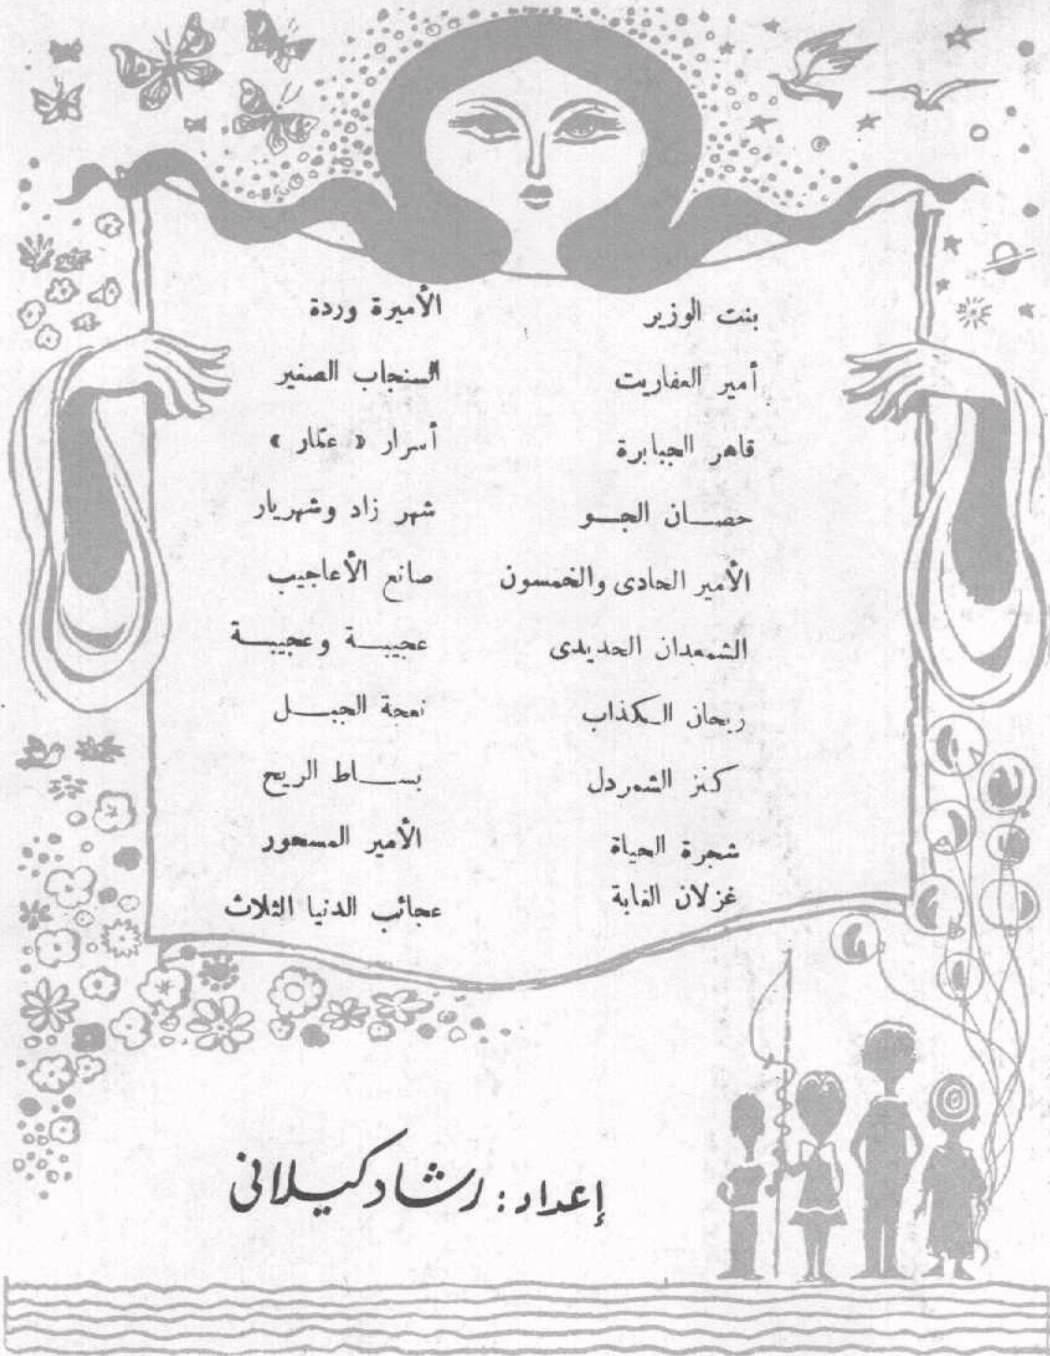 بنت الوزير
أمير العفاريت
قاهر الجبابرة
حصــان الجــو
الأمير الحادى والخمسون
الشمعدان الحديدى
ريحان الـكذاب
كنز الشمردل
شجرة الحياة
غزلان الغابة
الأميرة وردة
السنجاب الصغير
أسرار « عمّار »
شهر زاد وشهريار
صانع الأعاجيب
عجيبــة وعجيبــة
نعجة الجبــل
بســـاط الريح
الأمير المسحور
عجائب الدنيا الثلاث
إعداد : رشاد كيلانى